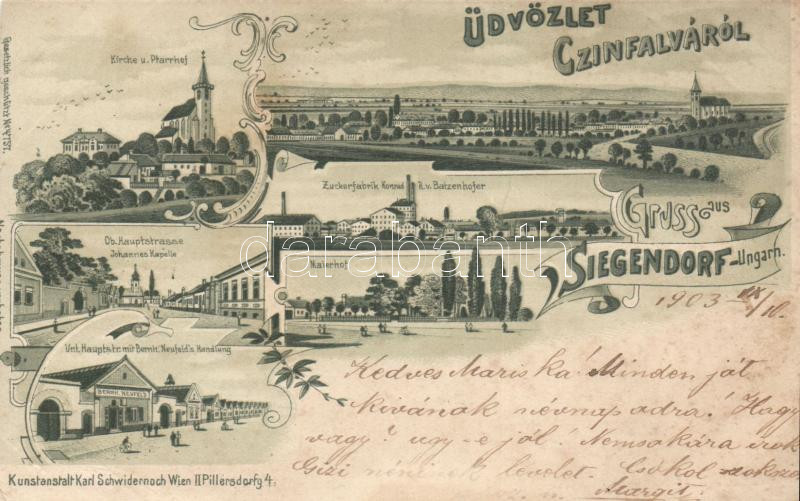 ÜDVÖZLET
CZINFALVÁRÓL
Kirche u. Pfarrhof
Zuckerfabrik Konrad R.v. Batzenhofer
GRUSS aus
SIEGENDORF-Ungarn.
Ob. Hauptstrasse
Johannes Kapelle
Maierhof
1903 IX/10.
Unt. Hauptstr. mit Bernh. Neufeld's Handlung
BERNH. NEUFELD
Kedves Mariska! Minden jót
kivánok nevnapodra! Hogy
vagy? ugy-e jól! Nemsokára irok
Gizi néninek levelet. Csókol
Margit
Kunstanstalt Karl Schwidernoch Wien II Pillersdorfg 4.
Gesetzlich geschützt
darabanth.com